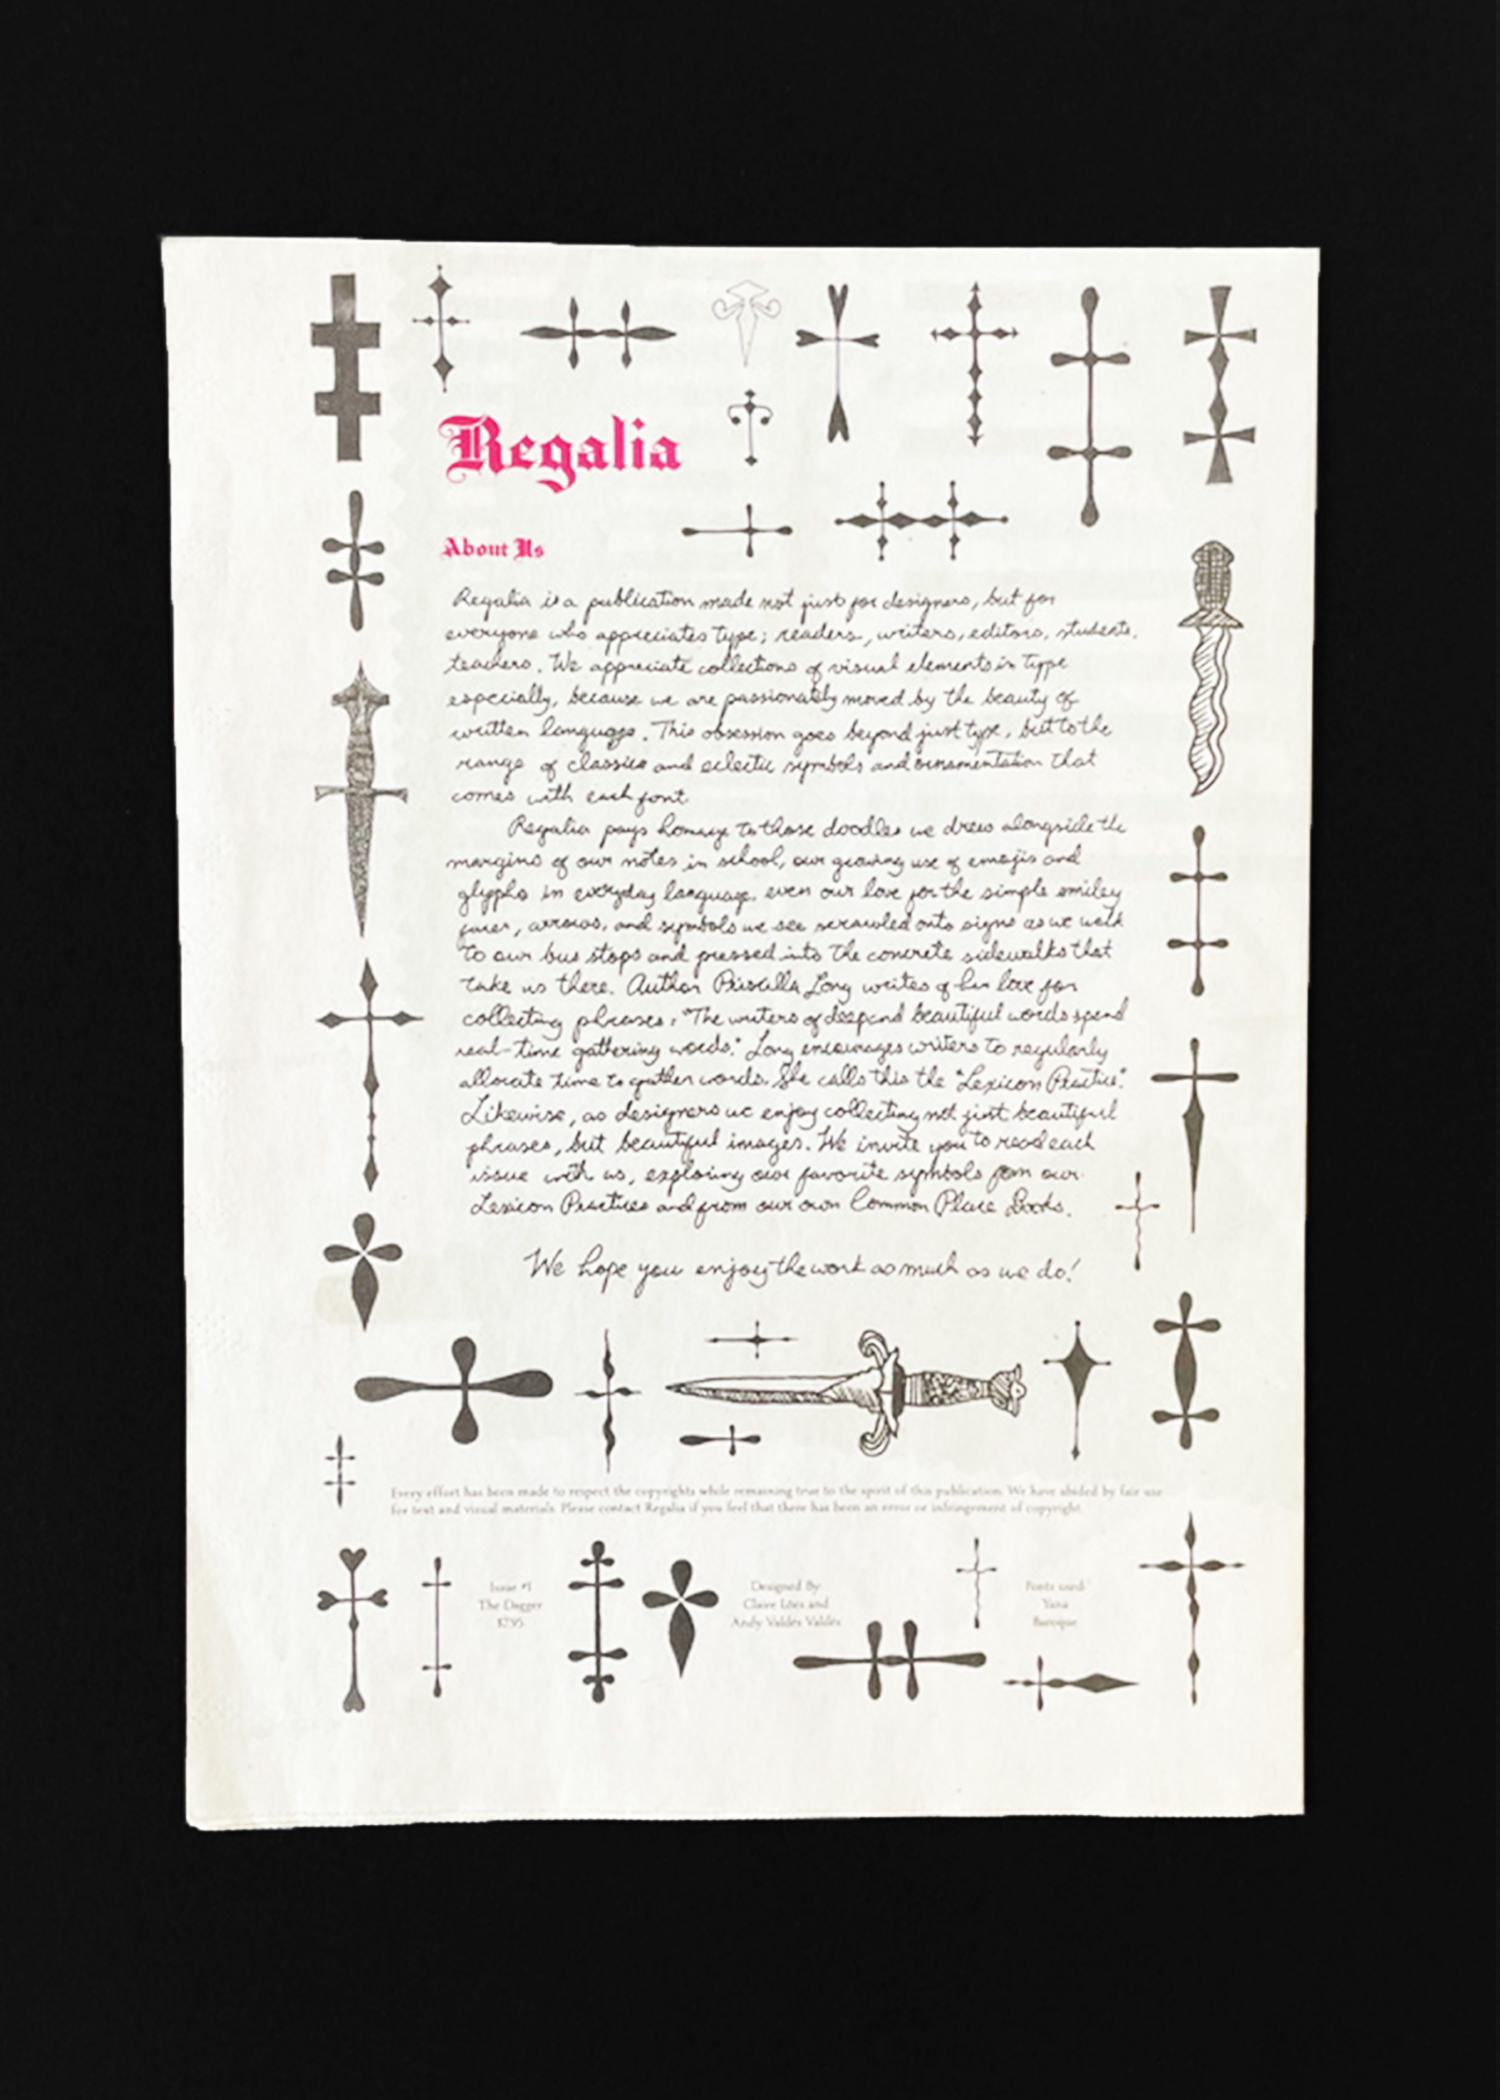 Regalia
About Us
Regalia is a publication made not just for designers, but for
everyone who appreciates type; readers, writers, editors, students,
teachers. We appreciate collections of visual elements in type
especially, because we are passionately moved by the beauty of
written language. This obsession goes beyond just type, but to the
range of classics and eclectic symbols and ornamentation that
comes with each font.
Regalia pays homage to those doodles we drew alongside the
margins of our notes in school, our growing use of emojis and
glyphs in everyday language, even our love for the simple smiley
faces, arrows, and symbols we see scrawled onto signs as we walk
to our bus stops and pressed into the concrete sidewalks that
take us there. Author Priscilla Long writes of her love for
collecting phrases: "The writers of deep and beautiful words spend
real-time gathering words." Long encourages writers to regularly
allocate time to gather words. She calls this the "Lexicon Practice".
Likewise, as designers we enjoy collecting not just beautiful
phrases, but beautiful images. We invite you to read each
issue with us, exploring our favorite symbols from our
Lexicon Practices and from our own Common Place Books.
We hope you enjoy the work as much as we do!
Every effort has been made to respect the copyrights while remaining true to the spirit of this publication. We have abided by fair use
for text and visual materials. Please contact Regalia if you feel that there has been an error or infringement of copyright.
Issue #1
The Dagger
$7.95
Designed By:
Claire Lòes and
Andy Valdés Valdés
Fonts used:
Yana
Baroque